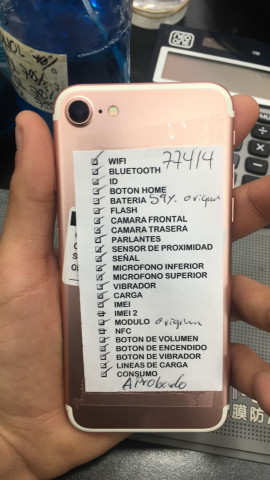 77414
WIFI
BLUETOOTH
ID
BOTON HOME
BATERIA 59%. original
FLASH
CAMARA FRONTAL
CAMARA TRASERA
PARLANTES
SENSOR DE PROXIMIDAD
SEÑAL
MICROFONO INFERIOR
MICROFONO SUPERIOR
VIBRADOR
CARGA
IMEI
IMEI 2
MODULO original
NFC
BOTON DE VOLUMEN
BOTON DE ENCENDIDO
BOTON DE VIBRADOR
LINEAS DE CARGA
CONSUMO
Aprobado